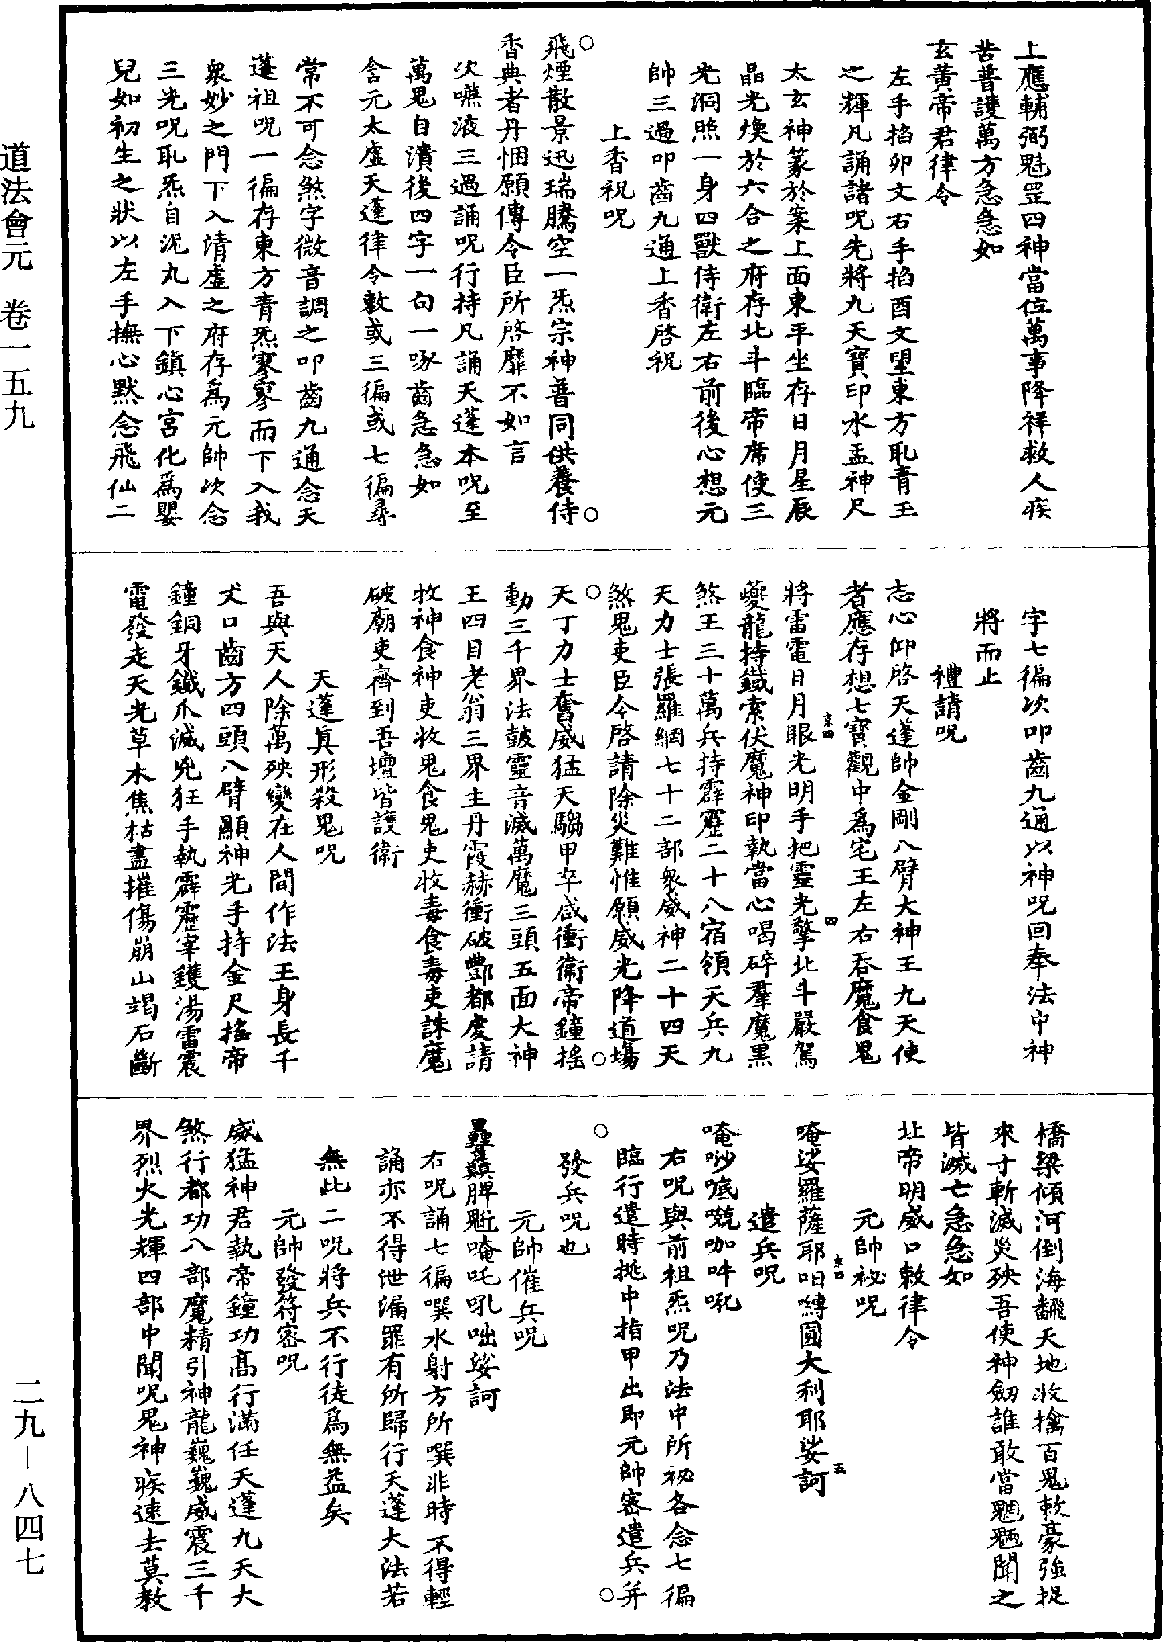 上應輔弼魁罡四神當位萬事降祥救人疾
苦普護萬方急急如
玄黃帝君律令
左手掐卯文右手掐酉文望東方取青玉
之輝凡誦諸呪先將九天寶印水盂神尺
太玄神篆於案上面東平坐存日月星辰
晶光煥於六合之府存北斗臨帝席使三
光洞照一身四獸侍衛左右前後心想元
帥三過叩齒九通上香啓祝
上香祝呪
飛煙散景迅瑞騰空一炁宗神普同供養侍
香典者丹悃願傳令臣所啓靡不如言
次嚥液三過誦呪行持凡誦天蓬本呪至
萬鬼自潰後四字一句一啄齒急急如
含元太虛天蓬律令敕或三徧或七徧尋
常不可念煞字微音調之叩齒九通念天
蓬祖呪一徧存東方青炁寥寥而下入我
衆妙之門下入清虛之府存爲元帥次念
三光呪取炁自泥丸入下鎮心宮化爲嬰
兒如初生之狀以左手撫心默念飛仙二
字七徧次叩齒九通以神呪回奉法中神
將而止
禮請呪
志心仰啓天蓬帥金剛八臂大神王九天使
者應存想七寶觀中爲宅王左右吞魔食鬼
將雷電日月眼光明手把靈光擎北斗嚴駕
夔龍持鐵索伏魔神印執當心喝碎羣魔黑
煞王三十萬兵持霹靂二十八宿領天兵九
天力士張羅網七十二部衆威神二十四天
煞鬼吏臣今啓請除災難惟願威光降道場
天丁力士奮威猛天騶甲卒咸衝衛帝鐘搖
動三千界法鼓靈音滅萬魔三頭五面大神
王四目老翁三界主丹霞赫衝破酆都虔請
收神食神吏收鬼食鬼吏收毒食毒吏誅魔
破廟吏齊到吾壇皆護衛
天蓬真形殺鬼呪
吾與天人除萬殃變在人間作法王身長千
丈口齒方四頭八臂顯神光手持金尺搖帝
鐘銅牙鐵爪滅兇狂手執霹靂宰鑊湯雷震
電發走天光草木焦枯盡摧傷崩山竭石斷
橋梁傾河倒海翻天地收擒百鬼敕豪強捉
來寸斬滅災殃吾使神劒誰敢當魍魎聞之
皆滅亡急急如
北帝明威口敕律令
元帥祕呪
唵娑羅薩耶呾嚩圓大利耶娑訶
遣兵呪
唵吵㗧㘈咖吽吼
右呪與前祖炁呪乃法中所祕各念七徧
臨行遣時挑中指甲出即元帥密遣兵并
發兵呪也
元帥催兵呪
唵吒吼咄娑訶
右呪誦七徧噀水射方所噀非時不得輕
誦亦不得泄漏罪有所歸行天蓬大法若
無此二呪將兵不行徒爲無益矣
元帥發符密呪
威猛神君執帝鐘功高行滿任天蓬九天大
煞行都功八部魔精引神龍巍巍威震三千
界烈火光輝四部中聞呪鬼神疾速去莫教
道法會元　卷一五九
二九—八四七